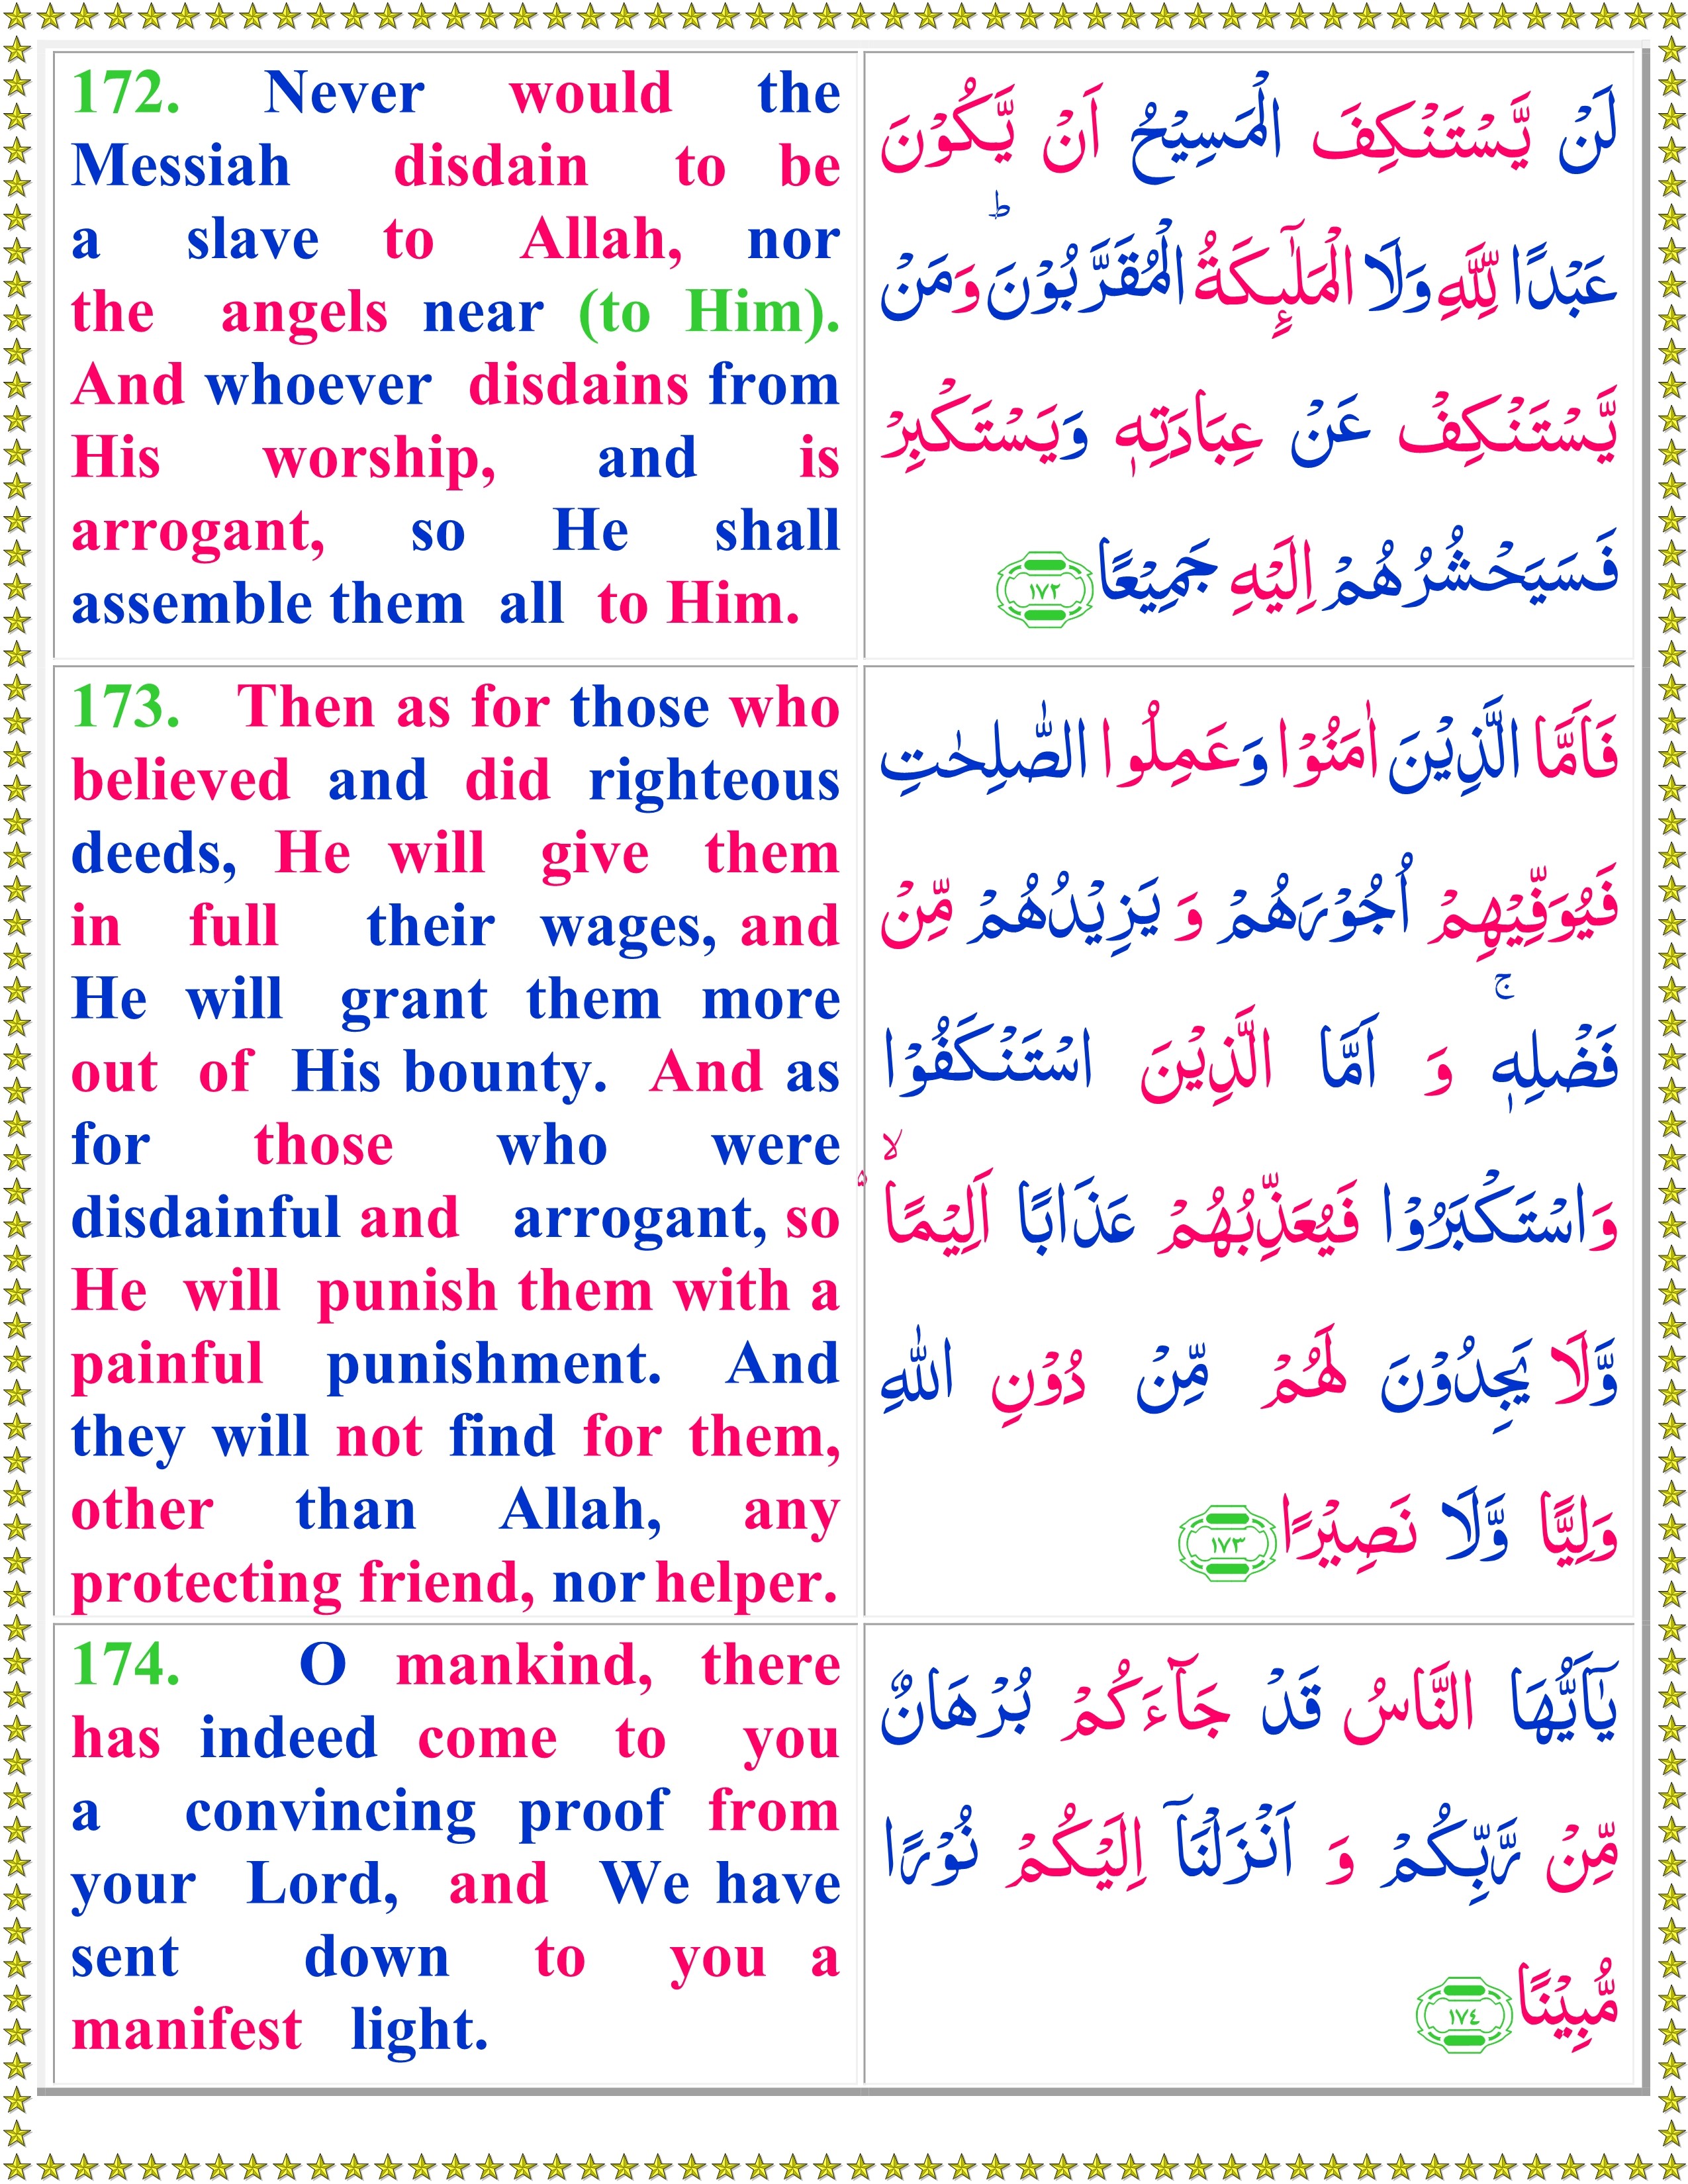 172. Never would the
Messiah disdain to be
a slave to Allah, nor
the angels near (to Him).
And whoever disdains from
His worship, and is
arrogant, so He shall
assemble them all to Him.
لَنْ يَّسْتَنْكِفَ الْمَسِيْحُ اَنْ يَّكُوْنَ
عَبْدًا لِّلّٰهِ وَلَا الْمَلٰٓىِٕكَةُ الْمُقَرَّبُوْنَ ؕ وَمَنْ
يَّسْتَنْكِفْ عَنْ عِبَادَتِهٖ وَيَسْتَكْبِرْ
فَسَيَحْشُرُهُمْ اِلَيْهِ جَمِيْعًا ١٧٢
173. Then as for those who
believed and did righteous
deeds, He will give them
in full their wages, and
He will grant them more
out of His bounty. And as
for those who were
disdainful and arrogant, so
He will punish them with a
painful punishment. And
they will not find for them,
other than Allah, any
protecting friend, nor helper.
فَاَمَّا الَّذِيْنَ اٰمَنُوْا وَعَمِلُوا الصّٰلِحٰتِ
فَيُوَفِّيْهِمْ اُجُوْرَهُمْ وَ يَزِيْدُهُمْ مِّنْ
فَضْلِهٖ ۚ وَ اَمَّا الَّذِيْنَ اسْتَنْكَفُوْا
وَاسْتَكْبَرُوْا فَيُعَذِّبُهُمْ عَذَابًا اَلِيْمًا ۙ
وَّلَا يَجِدُوْنَ لَهُمْ مِّنْ دُوْنِ اللّٰهِ
وَلِيًّا وَّلَا نَصِيْرًا ١٧٣
174. O mankind, there
has indeed come to you
a convincing proof from
your Lord, and We have
sent down to you a
manifest light.
يٰۤاَيُّهَا النَّاسُ قَدْ جَآءَكُمْ بُرْهَانٌ
مِّنْ رَّبِّكُمْ وَ اَنْزَلْنَاۤ اِلَيْكُمْ نُوْرًا
مُّبِيْنًا ١٧٤